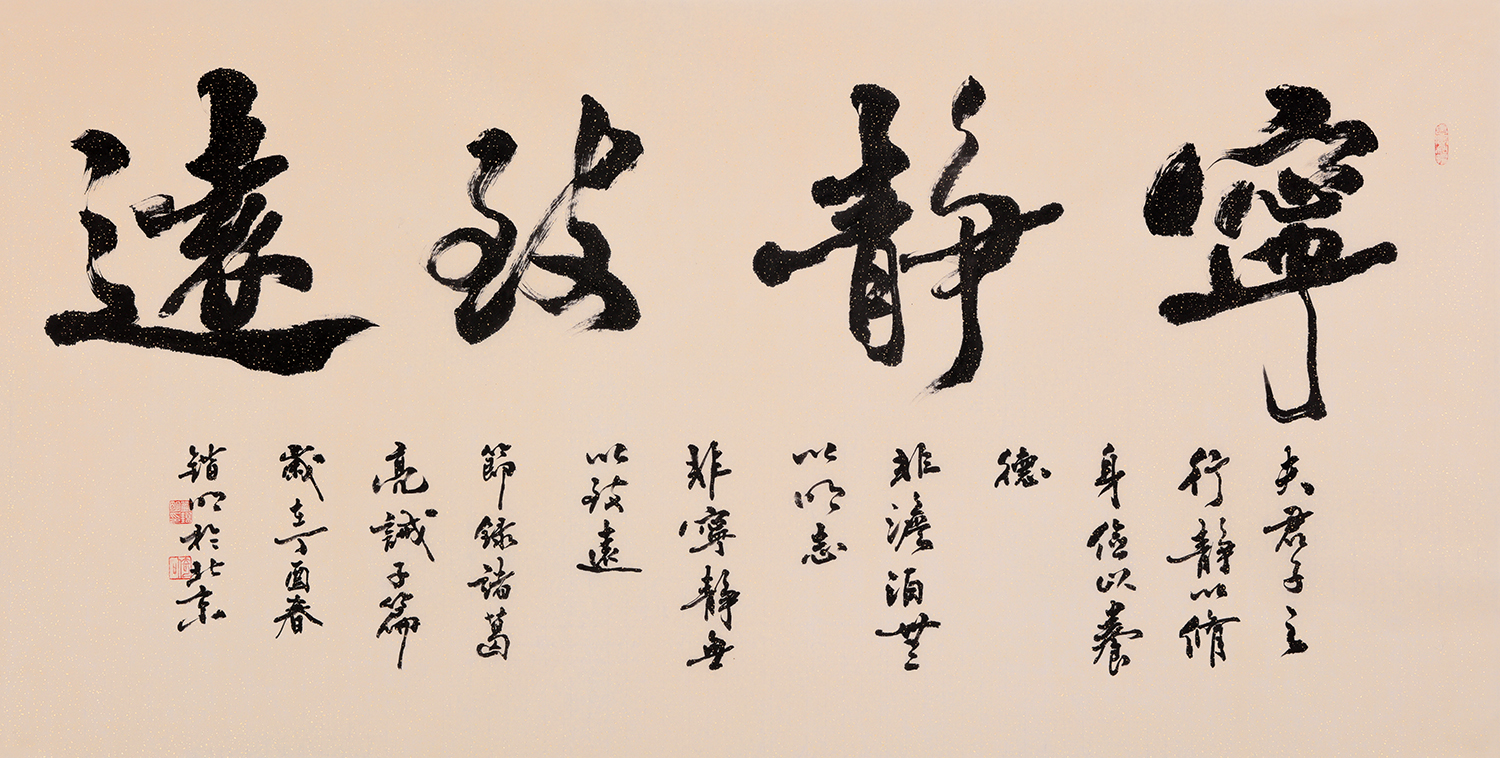 寧靜致遠
夫君子之
行靜以脩
身儉以養
德
非澹泊無
以明志
非寧靜無
以致遠
節錄諸葛
亮誡子篇
歲在丁酉春
鍇明於北京